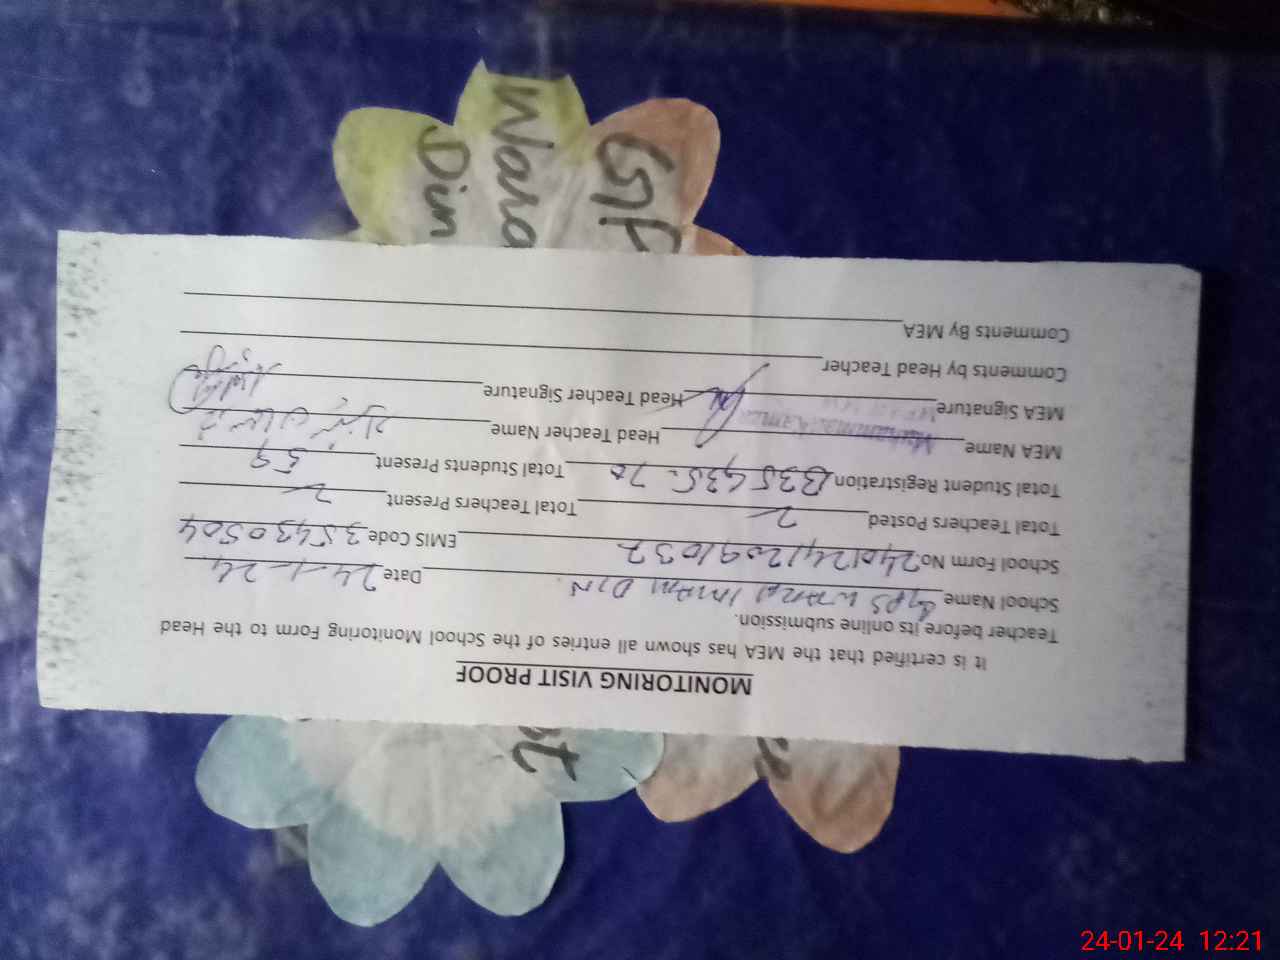 MONITORING VISIT PROOF
It is certified that the MEA has shown all entries of the School Monitoring Form to the Head
Teacher before its online submission.
School Name GPS WARA IMAM DIN Date 24-1-24
School Form No 24012412091037 EMIS Code 35430504
Total Teachers Posted 2 Total Teachers Present 2
Total Student Registration B35G35-70 Total Students Present 59
MEA Name Muhammad Kamran Head Teacher Name
MEA Signature Head Teacher Signature
Comments by Head Teacher
Comments By MEA
Wara
Din
st
24-01-24 12:21